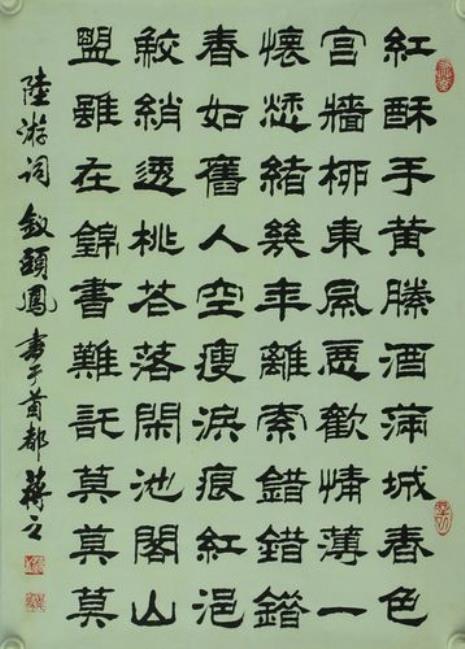 紅酥手黃縢酒滿城春色
宮牆柳東風惡歡情薄一
懷愁緒幾年離索錯錯錯
春如舊人空瘦淚痕紅浥
鮫綃透桃花落閑池閣山
盟雖在錦書難託莫莫莫
陸游词 釵頭鳳 書于首都 蔣